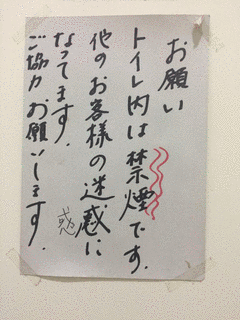 お願い
トイレ内は禁煙です.
他のお客様の迷惑に
なってます.
ご協力お願いします.
惑